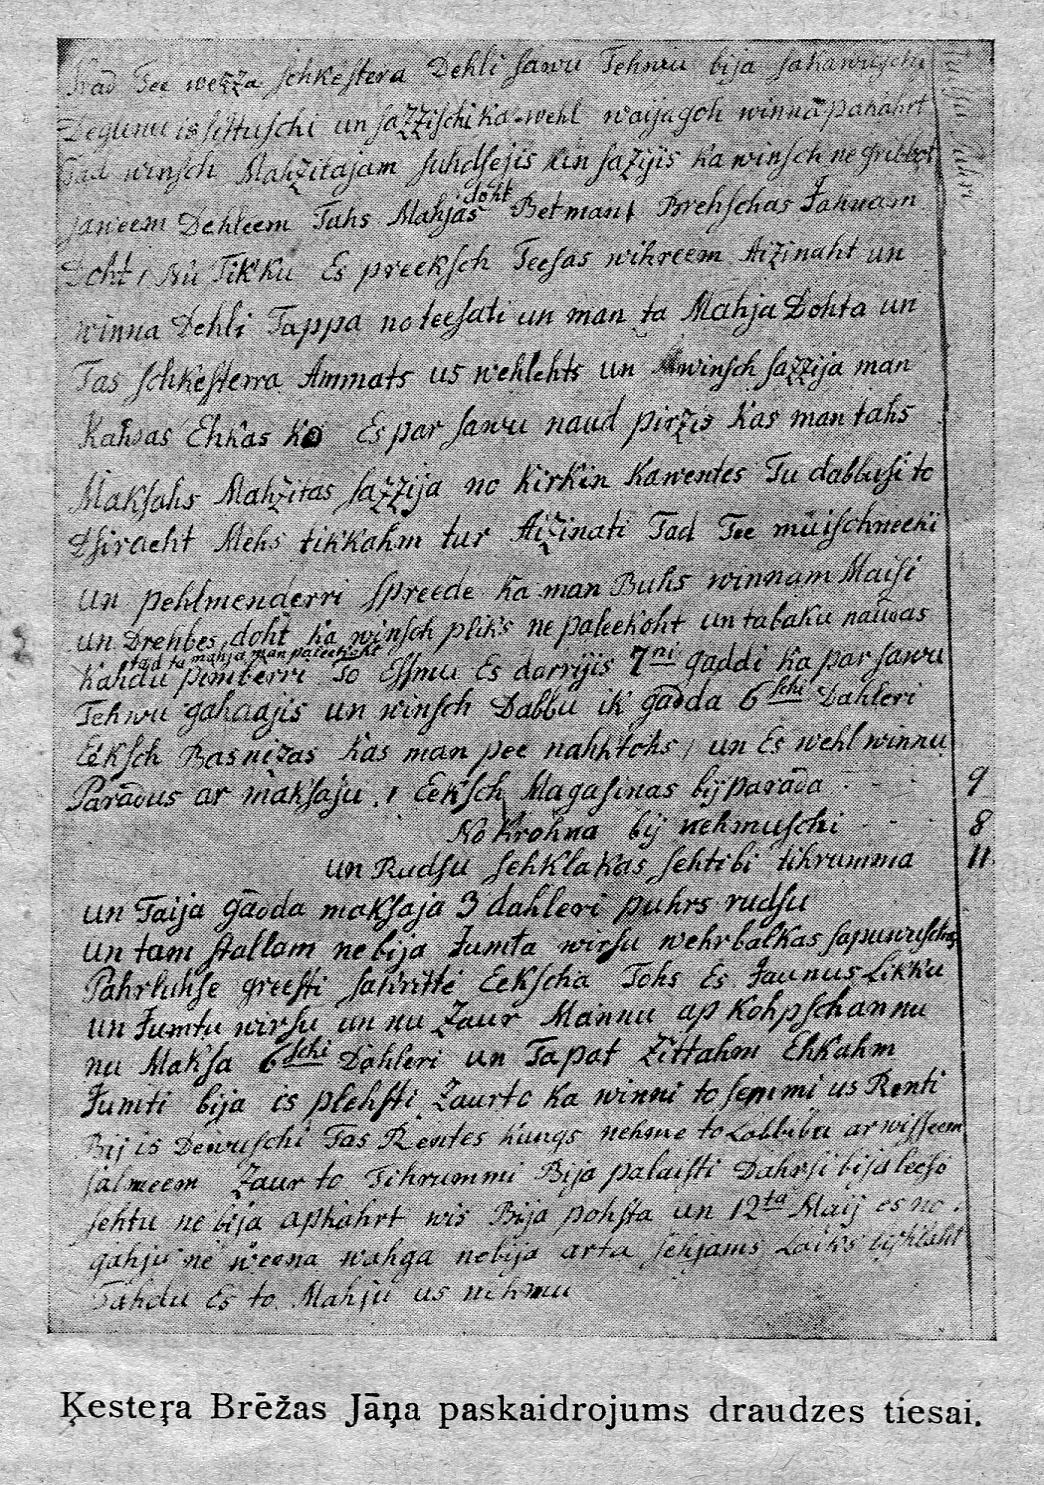 Kad Tee wezza schkestera Dehli sawu Tehwu bija sakawuschu
Degunu is sittuschi un sazzischi ka wehl waijagoh winna pakahrt
Tad winsch Mahzitajam suhdsejis un sazijis ka winsch ne gribbot
saweem Dehleem Tahs Mahjas doht Bet man Brehschas Jahnam
Doht, Nu Tikku Es preeksch Teesas wihreem Aizinaht un
winna Dehli Tappa noteesati un man ta Mahja Dohta un
Tas schkesterra Ammats us wehlehts un winsch sazzija man
Kahdas Ehkas ko Es par sawu naud pirzis Kas man tahs
Maksahs Mahzitas sazzija no Kirkin Kawentes Tu dabbusi to
Mehs tikkahm tur Aizinati Tad Tee muischneeki
un pehlmenderri spreede ka man Buhs winnam Maisi
un Drehbes doht ka winsch pliks ne paleekoht un tabaku naudas
tad ta mahja man paleekoht
Kahdu pimberri To Essmu Es darrijis 7ni gaddi ka par sawu
Tehwu gahdajis un winsch Dabbu ik gadda 6schi Dahleri
Eeksch Basnizas kas man pee nahktohs, un Es wehl winnu
Paradus ar maksaju, Eeksch Magasinas bij parada - - - 9
No Krohna bij nehmuschi - - - 8
un Rudsu sehkla kas sehti bi tihrumma 11
un Taija gadda maksaja 3 dahleri puhrs rudsu
un tam stallam ne bija Jumta wirsu wehrbalkas sapuwuschas
Pahrluhse greesti sakritte Eekscha Tohs Es Jaunus Likku
un Jumtu wirsu un nu Zaur Mannu ap kohpschannu
nu Maksa 6schi Dahleri un Tapat Zittahm Ehkahm
Jumti bija is plehsti Zaur to ka winni to semmi us Renti
Bij is Dewuschi Tas Rentes kungs nehme to Labbibu ar wisseem
salmeem Zaur to Tihrummi Bija palaisti Dahrsi bija leeso
sehtu ne bija apkahrt wis Bija pohsta un 12ta Maij es no
gahju ne weena wahga nebija arta sehjams Laiks bij klaht
Tahdu Es to Mahju us nehmu
Ķesteŗa Brēžas Jāņa paskaidrojums draudzes tiesai.